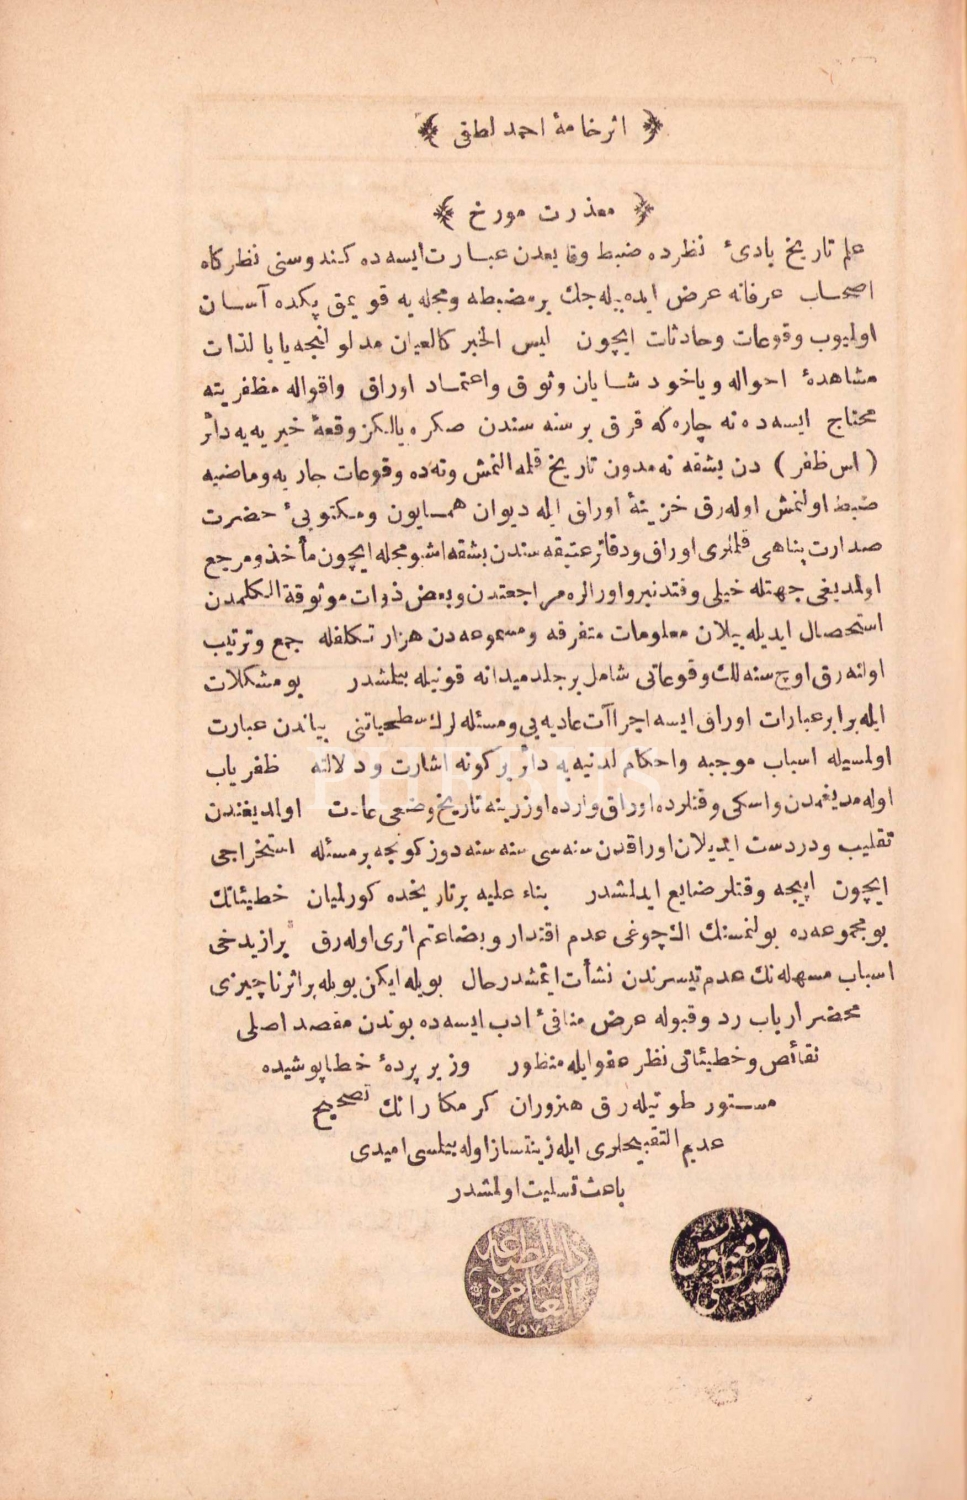 اثر خامهٔ احمد لطفی
معذرت مورخ
علم تاریخ بادیٔ نظرده ضبط وقایعدن عبارت ایسه ده کندوسنی نظرکاه
اصحاب عرفانه عرض ایده بیله جك بر مضبطه و مجله یه قویمق پکده آسان
اولمیوب وقوعات وحادثات ایچون لیس الخبر کالعیان مدلولنجه یا بالذات
مشاهدهٔ احواله ویاخود شایان وثوق واعتماد اوراق واقواله مظفریته
محتاج ایسه ده نه چاره که قرق بر سنه سندن صکره یالکز وقعهٔ خیریه یه دائر
( اس ظفر ) دن بشقه نه مدون تاریخ قلمه النمش ونه ده وقوعات جاریه وماضیه
ضبط اولنمش اوله رق خزینهٔ اوراق ایله دیوان همایون ومکتوبیٔ حضرت
صدارت پناهی قلملری اوراق ودفاتر عتیقه سندن بشقه اشبو مجله ایچون مأخذ ومرجع
اولمدیغی جهتله خیلی وقتدنبرو اورالره مراجعتدن وبعض ذوات موثوقة الکلمدن
استحصال ایدیله بیلان معلومات متفرقه ومسموعه دن هزار تکلفله جمع وترتیب
اولنه رق اوچ سنه لك وقوعاتی شامل بر جلد میدانه قونیله بیلشدر بو مشکلات
ایله برابر عبارات اوراق ایسه اجراآت عادیه یی ومسئله لرك سطحیاتنی بیاندن عبارت
اولمسیله اسباب موجبه واحکام لدنیه یه دائر بر کونه اشارت ودلالته ظفریاب
اوله مدیغمدن واسکی وقتلرده اوراق وارده اوزرینه تاریخ وضعی عادت اولمدیغندن
تقلیب ودردست ایدیلان اوراقدن سنه سی سنه سنه دوزکونجه بر مسئله استخراجی
ایچون اییجه وقتلر ضایع ایدلمشدر بناء علیه بر تاریخده کورلمیان خطیئاتك
بو مجموعه ده بولنمسنك الك چوغی عدم اقتدار وبضاعتم اثری اوله رق برازیدخی
اسباب مسهله نك عدم تیسرندن نشأت ایتمشدر حال بویله ایکن بویله بر اثر ناچیزی
محضر ارباب رد وقبوله عرض منافیٔ ادب ایسه ده بوندن مقصد اصلی
نقائص وخطیئاتی نظر عفو ایله منظور وزیر پردهٔ خطا پوشیده
مستور طوتیله رق هنروران کرمکارانك تصحیح
عدیم التقبیحلری ایله زینتساز اوله بیلسی امیدی
باعث تسلیت اولمشدر
دار الطباعه العامره
١٢٥٧
وقعه نویس احمد لطفی
PHEBUS